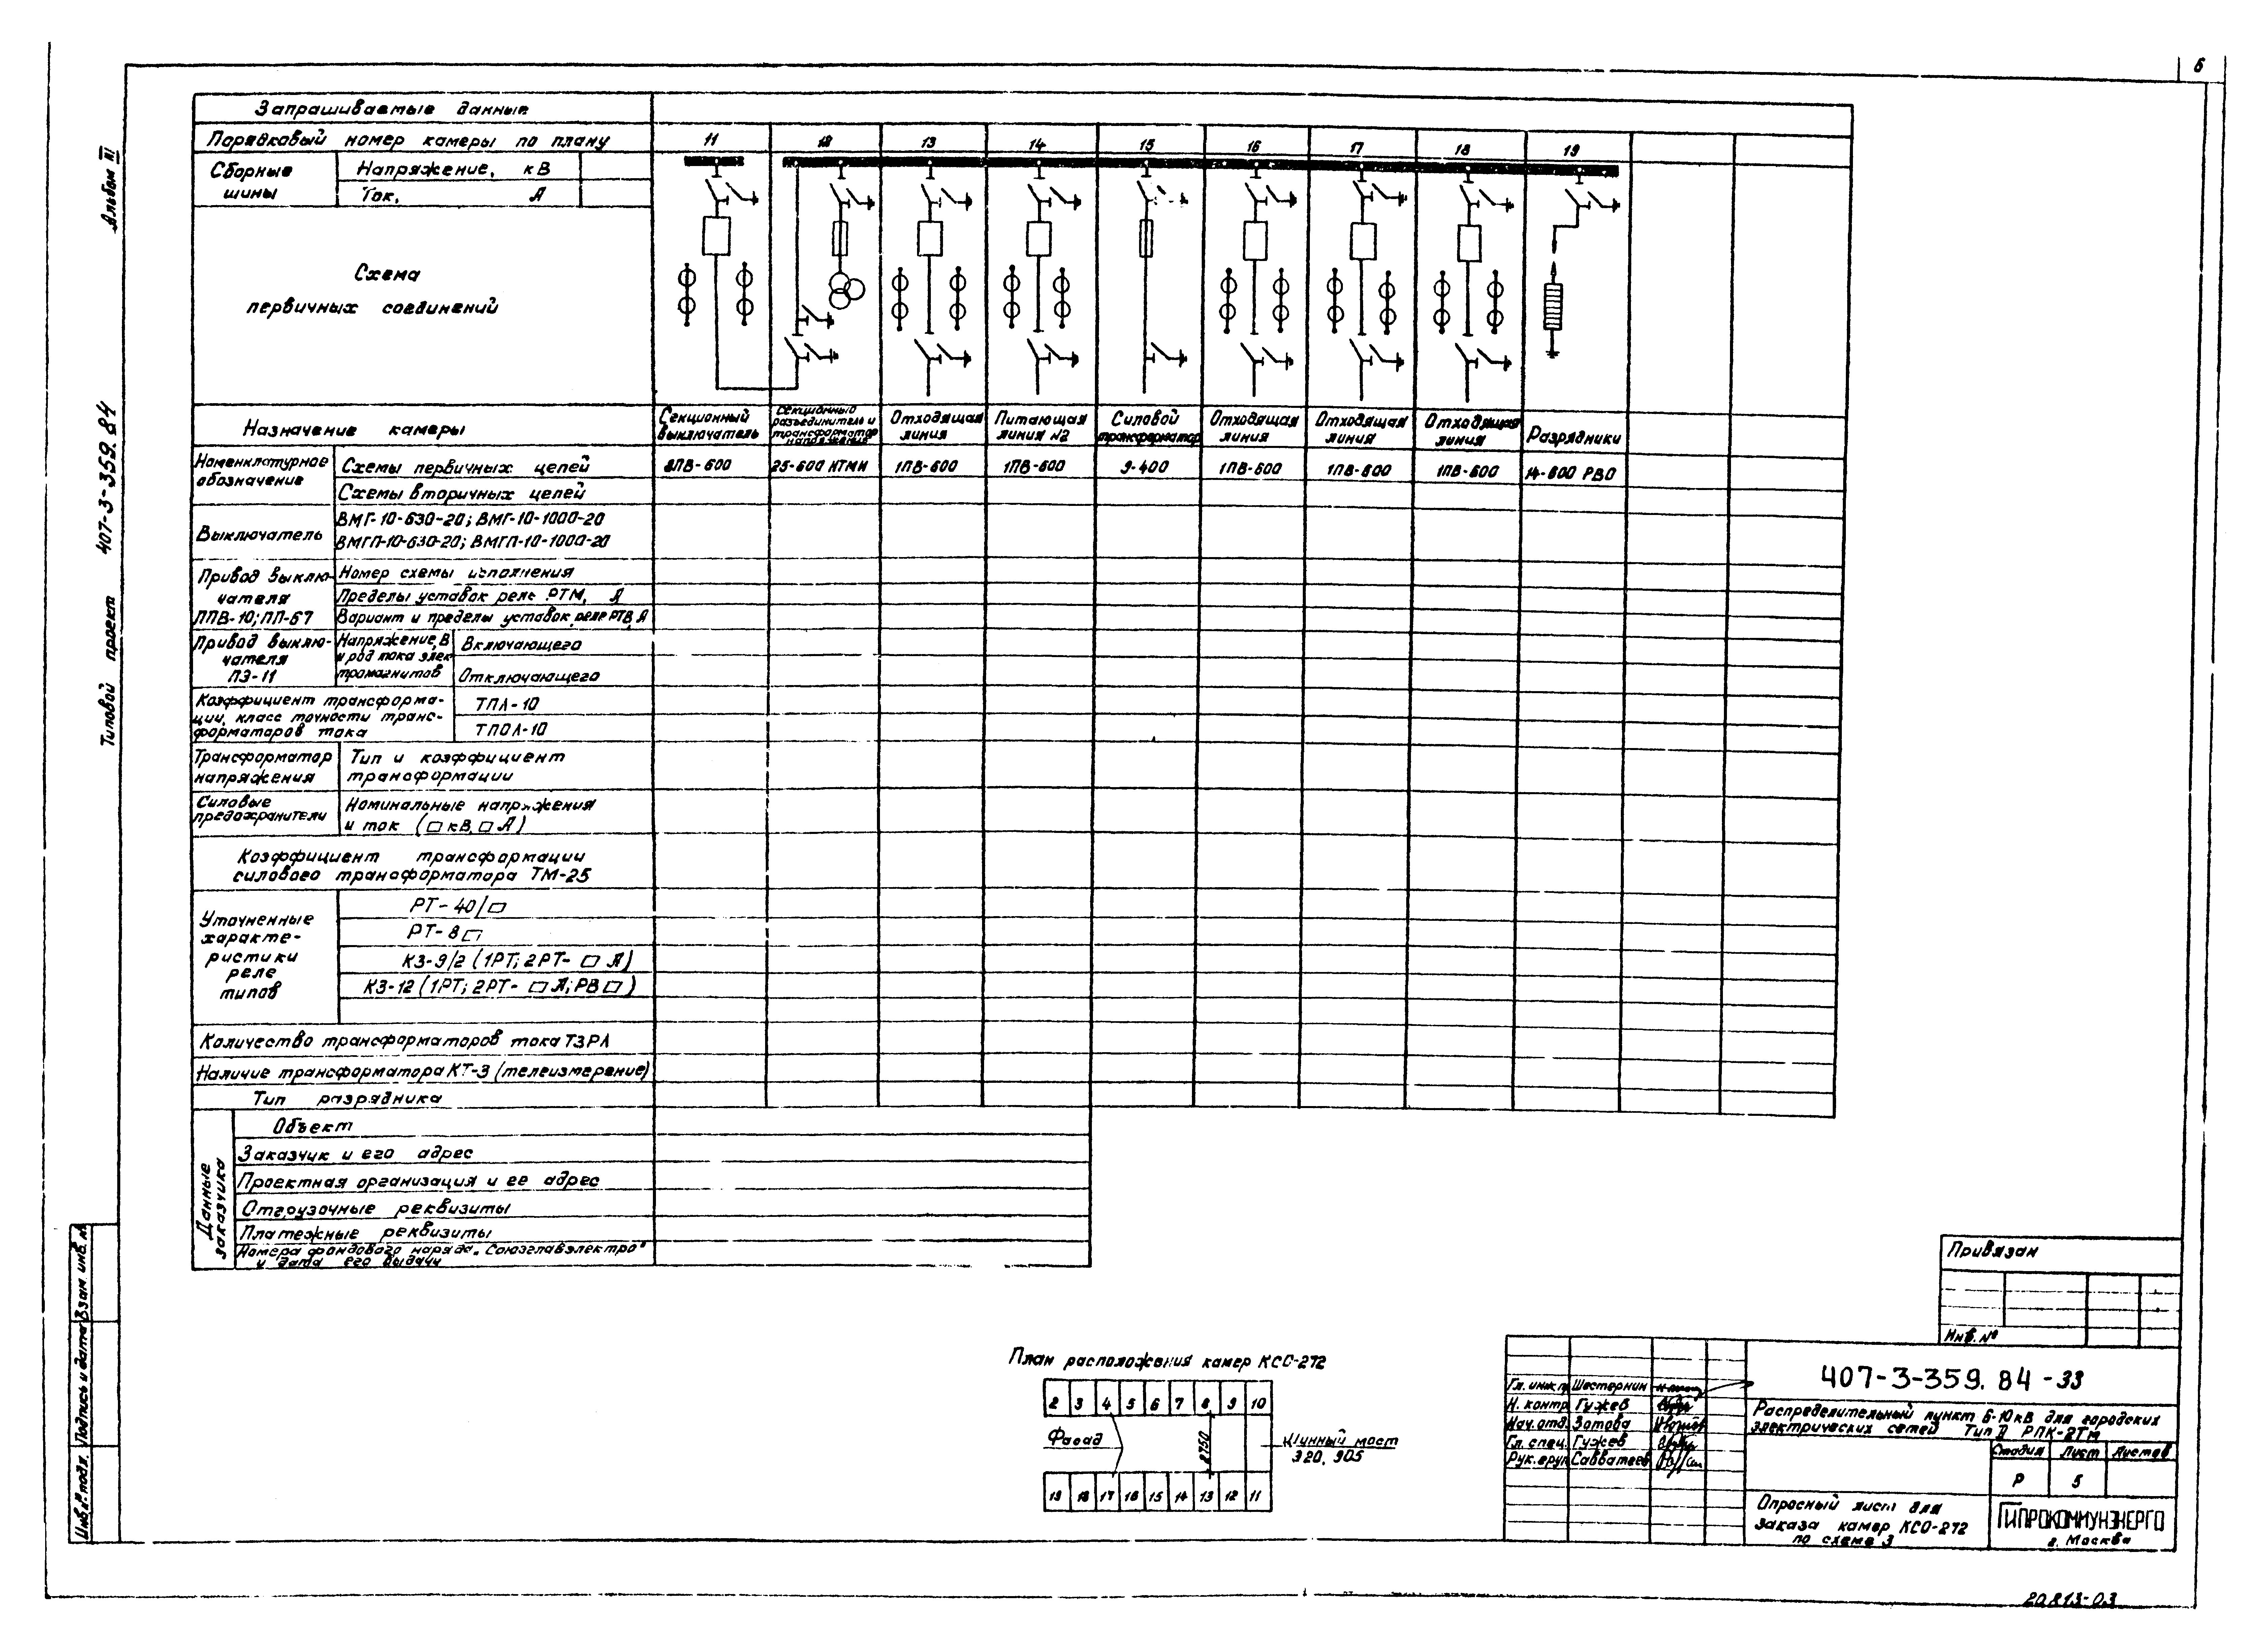 6
Альбом III
Типовой проект 407-3-359.84
Запрашиваемые данные
Порядковый номер камеры по плану
11 12 13 14 15 16 17 18 19
Сборные шины
Напряжение, кВ
Ток, А
Схема
первичных соединений
Назначение камеры
Секционный выключатель
Секционный разъединитель и трансформатор напряжения
Отходящая линия
Питающая линия №2
Силовой трансформатор
Отходящая линия
Отходящая линия
Отходящая линия
Разрядники
Номенклатурное обозначение
Схемы первичных цепей
8ПВ-600 25-600 НТМИ 1ПВ-600 1ПВ-600 9-400 1ПВ-600 1ПВ-600 1ПВ-600 14-600 РВО
Схемы вторичных цепей
Выключатель
ВМГ-10-630-20; ВМГ-10-1000-20
ВМГП-10-630-20; ВМГП-10-1000-20
Привод выключателя ППВ-10; ПП-67
Номер схемы исполнения
Пределы уставок реле РТМ, А
Вариант и пределы уставок реле РТВ, А
Привод выключателя ПЭ-11
Напряжение, В и род тока электромагнитов
Включающего
Отключающего
Коэффициент трансформации, класс точности трансформаторов тока
ТПЛ-10
ТПОЛ-10
Трансформатор напряжения
Тип и коэффициент
трансформации
Силовые предохранители
Номинальные напряжения
и ток (□ кВ, □ А)
Коэффициент трансформации
силового трансформатора ТМ-25
Уточненные характеристики реле типов
РТ-40/□
РТ-8□
КЗ-9/2 (1РТ; 2РТ- □ А)
КЗ-12 (1РТ; 2РТ- □ А; РВ □)
Количество трансформаторов тока ТЗРЛ
Наличие трансформатора КТ-3 (телеизмерение)
Тип разрядника
Данные заказчика
Объект
Заказчик и его адрес
Проектная организация и ее адрес
Отгрузочные реквизиты
Платежные реквизиты
Номера фондового наряда „Союзглавэлектро"
и дата его выдачи
План расположения камер КСО-272
2 3 4 5 6 7 8 9 10
Фасад
2750
Шинный мост
320, 905
19 18 17 16 15 14 13 12 11
Привязан
Инв. №
Гл. инж. п. Шестернин
Н. контр. Гужев
Нач. отд. Зотова
Гл. спец. Гужев
Рук. груп. Савватеев
407-3-359.84-33
Распределительный пункт 6-10кВ для городских
электрических сетей Тип II РПК-2Тм
Стадия Лист Листов
Р 5
Опросный лист для
заказа камер КСО-272
по схеме 3
ГИПРОКОММУНЭНЕРГО
г. Москва
Инв. № подл. Подпись и дата Взам. инв. №
20813-03